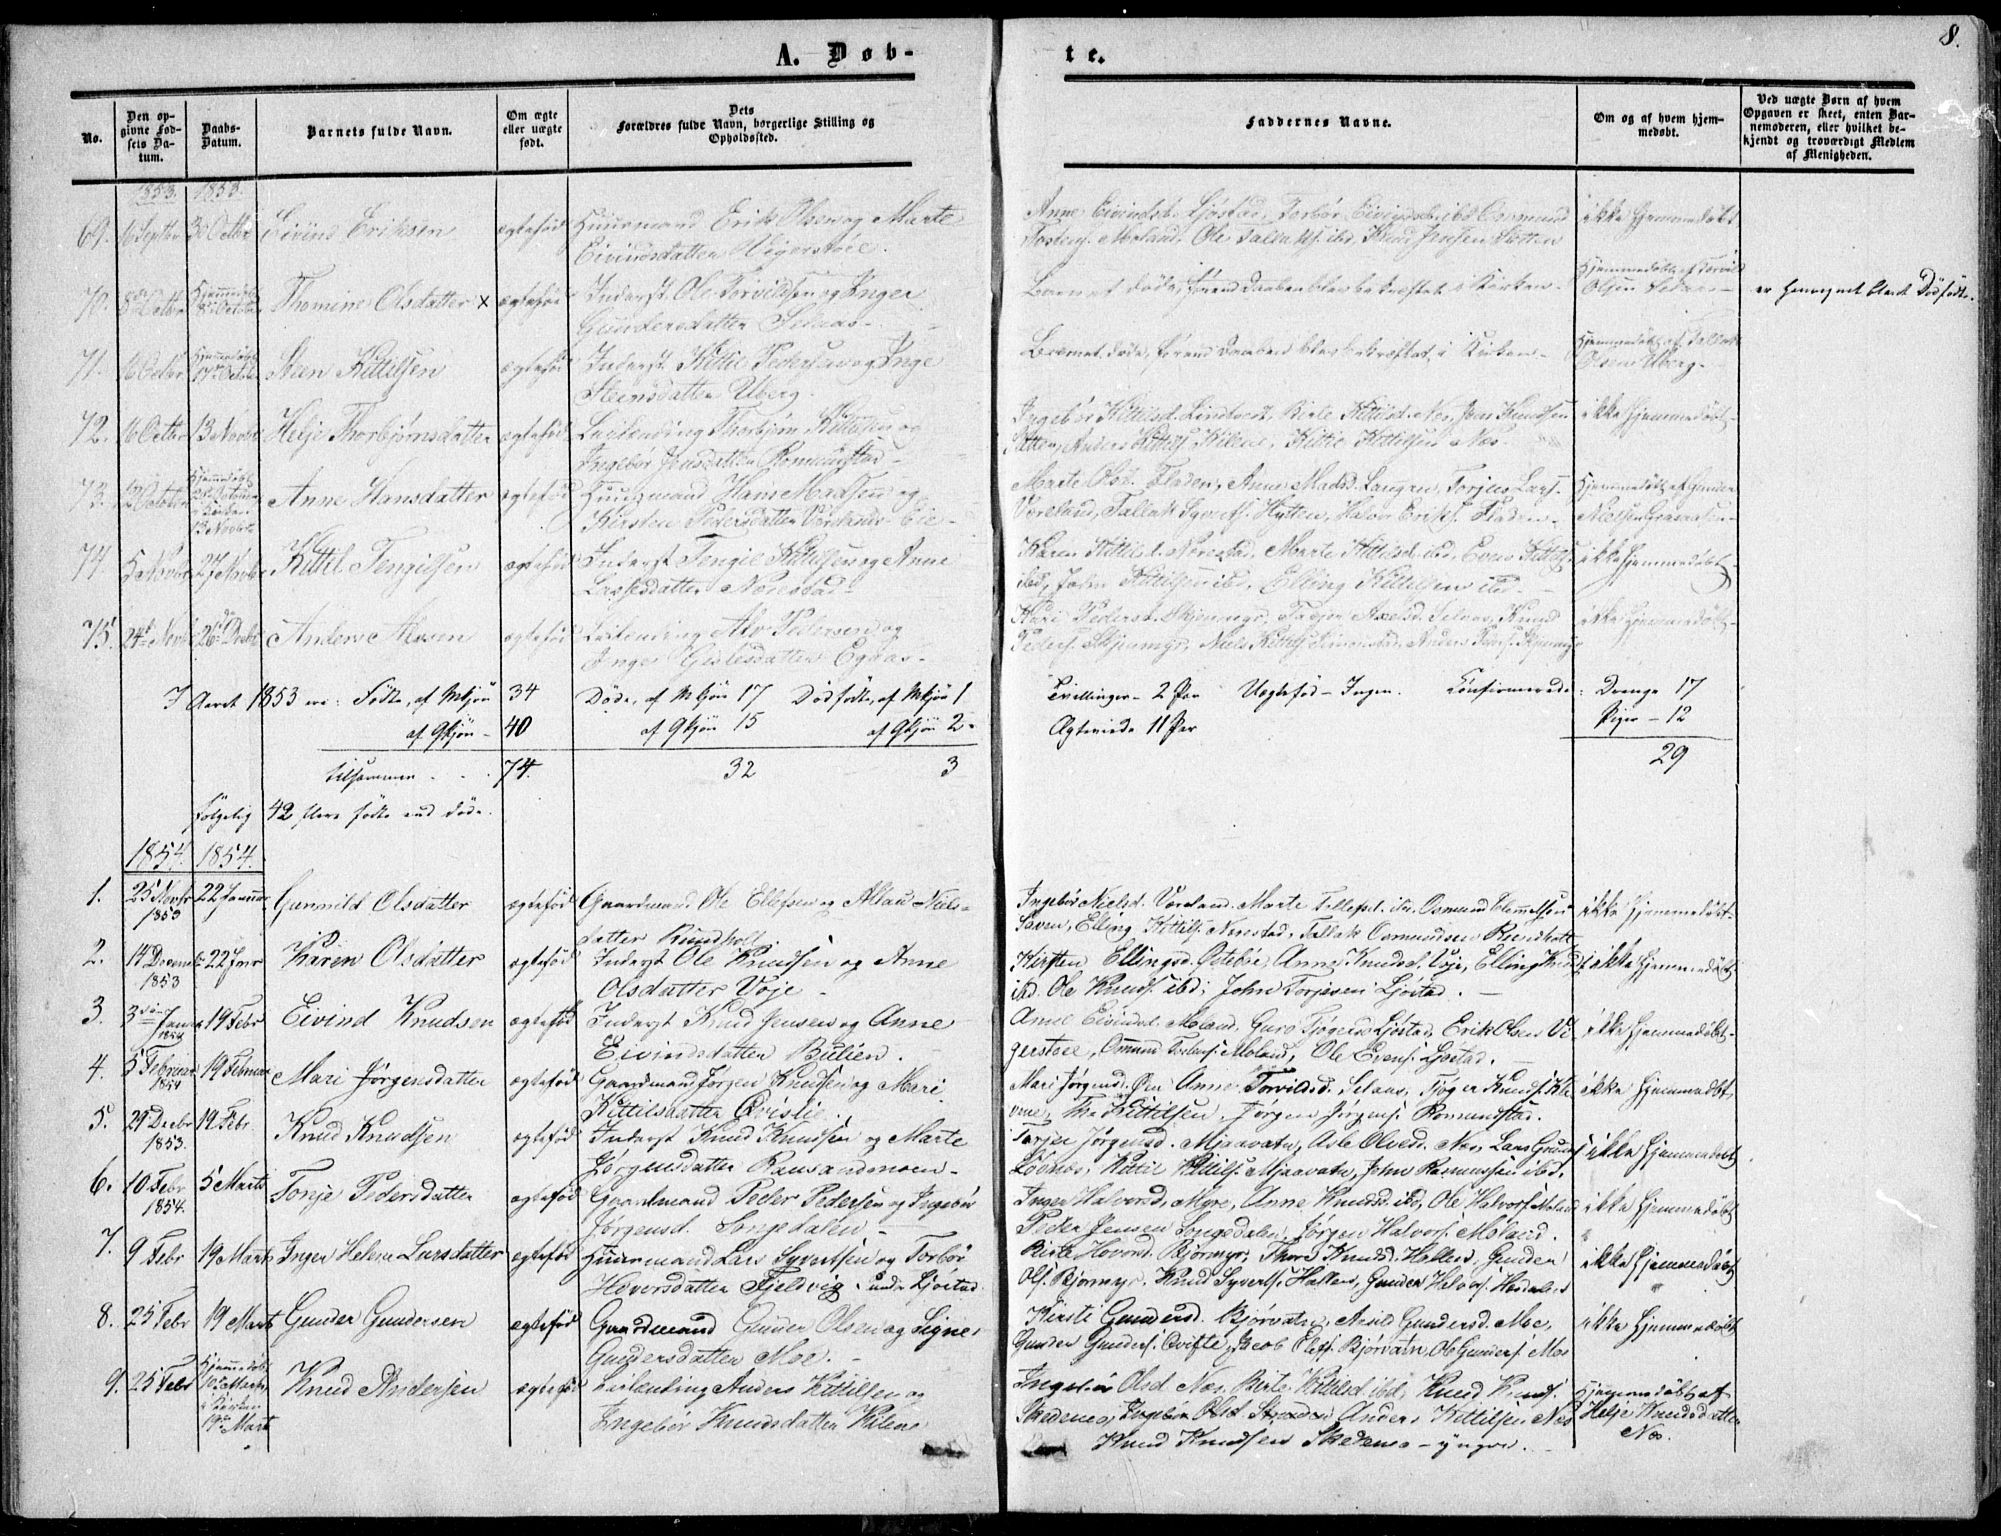 8.
A. Døbte.
No.
Den opgivne Fødsels Datum.
Daabs-Datum.
Barnets fulde Navn.
Om ægte eller uægte født.
Dets Forældres fulde Navn, borgerlige Stilling og Opholdssted.
Faddernes Navne.
Om og af hvem hjemmedøbt.
Ved uægte Børn af hvem Opgaven er skeet, enten Barnemoderen, eller hvilket bekjendt og troværdigt Medlem af Menigheden.
1853. 1853.
69. 16 Septbr 30 Octbr Eivind Eriksen ægtefød Huusmand Erik Olsen og Marte
Eivindsdatter Vigerstøle.
Anne Eivindsd. Ljøstad, Torbør Eivindsd. ibd Osmund
Tostens. Moland, Ole Tallaks. ibd, Knud Jensen
ikke hjemmedøbt
70. 8de Octbr Hjemmedøbt 8de Octbr Thomine Olsdatter x ægtefød Inderst Ole Torvildsen og Inger
Gundersdatter Selaas.
Barnet døde, førend Daaben blev bekræftet i Kirken.
Hjemmedøbt af Torvild
Olsen Selaas
er henregnet blandt Dødfødte.
71. 16 Octbr Hjemmedøbt 17de Octbr Steen Kittilsen ægtefød Inderst Kittil Pedersen og Inge
Steensdatter Uberg.
Barnet døde, førend Daaben blev bekræftet i Kirken.
Hjemmedøbt af Tallak
Olsen Uberg.
72. 16 Octbr 13 Novbr Helje Thorbjørnsdatter ægtefød Leilending Thorbjørn Kittilsen og
Ingebør Jensdatter Romundstad
Ingebør Kittilsd. Lindtveit, Birte Kittilsd. Næs, Jens Knudsen
Anders Kittils. Kilene, Kittil Kittilsen Næs.
ikke hjemmedøbt
73. 12 October Hjemmedøbt
i Kirken
13 Novbr
Anne Hansdatter ægtefød Huusmand Hans Madsen og
Kirsten Pedersdatter Vorelands Eie
Marte Olsd. Fladen, Anne Madsd. Langen, Torjus Lars.
Voreland, Tallak Hytten, Halvor Eriks. Fladen
Hjemmedøbt af Gunder
Nielsen
74 5 Novbr 27 Novbr Kittil Tengielsen ægtefød Inderst Tengiel Kittilsen og Anne
Larsesdatter Nærestad
Karen Kittilsd. Nærestad, Marte Kittilsd ibd, Even Kittils.
ibd, John Kittilsen ibd, Elling Kittilsen ibd
ikke hjemmedøbt
75. 24de Novbr 26de Decbr Anders Alvsen ægtefød Leilending Alv Pedersen og
Inger Gislesdatter Egaas
Kari Pedersd. Skjennyr, Axelsd. Selaas, Knud
Peders. Skjenmyr, Niels
ikke hjemmedøbt
I Aaret 1853 ere: Fødte, af Mkjøn 34 Døde, af Mkjøn 17 Dødfødte, af Mkjøn 1
Tvillinger 2 Par Uægtefød - Ingen. Konfirmerede: Drenge 17
af Qkjøn - 40 af Qkjøn 15 af Qkjøn 2
Ægteviede 11 Par Piger - 12
tilsammen 74. 32 3 29
Følgelig 42 flere fødte end døde.
1854. 1854.
1. 25 Novbr 1853 22 Januar Gunnild Olsdatter ægtefød Gaardmand Ole Ellefsen og Altau Niels-
datter Rundholt
Ingebør Nielsd. Voreland, Marte Ellefsd. ibd, Osmund
Saven, Elling Kittils. Nærestad, Tallak Osmundsen Rundholt
ikke hjemmedøbt
2. 14 Decemb 1853 22 Janr Karen Olsdatter ægtefød Inderst Ole Knudsen og Anne
Olsdatter Voje
Kirsten Ellingsd. Østebøe, Anne Knudsd. Voje, Elling Knuds.
ibd. Ole Knuds. ibd; John Torjesen Ljøstad.
ikke hjemmedøbt
3. 3die Januar 1854 19 Febr Eivind Knudsen ægtefød Inderst Knud Jensen og Anne
Eivindsdatter Bulien.
Anne Eivindsd. Moland, Guro Ljøstad, Erik Olsen Vi-
gerstøle, Osmund Tostens. Moland, Ole Evens. Ljøstad.
ikke hjemmedøbt
4. 5 Februar 1854 19 Februar Mari Jørgensdatter ægtefød Gaardmand Jørgen Knudsen og Mari
Kittilsdatter Qvislie.
Mari Jørgensd. Øen Anne Torvildsd. Selaas, Tjøger Knuds. Kle-
vene, Kittilsen, Jørgen Jørgens. Romundstad.
ikke hjemmedøbt
5. 29 Decbr 1853. 19 Febr. Knud Knudsen ægtefød Inderst Knud Knudsen og Marte
Jørgensdatter Rausandmoen
Jørgensd. Mjaavatn, Aslo Olvesd. Næs, Lars
Kittil Kittils. Mjaavatn, John Rasmussen ibd.
ikke hjemmedøbt
6. 10 Febr 1854. 5 Marts Tonje Pedersdatter ægtefød Gaardmand Peder Pedersen og Ingebør
Jørgensd. Songedalen
Inger Halvorsd. Myre, Anne Knudsd. ibd, Ole Halvors. Moland
Peder Jensen Songedalen, Jørgen Halvors. Moland.
ikke hjemmedøbt
7. 9 Febr 19 Marts Inger Helene Larsdatter ægtefød Huusmand Lars Syvertsen og Torbør
Havorsdatter Fjeldvig under Ljøstad.
Birte Hovorsd. Bjørmyr, Thore Knudsd. Hallen, Gunder
Ols. Bjørmyr, Knud Syverts. Hallen, Gunder Halvors. Hovdalen
ikke hjemmedøbt
8. 25 Febr 19 Marts Gunder Gundersen ægtefød Gaardmand Gunder Olsen og Signe
Gundersdatter Moe.
Kirsti Gundersd. Bjørvatn, Assild Gundersd. Moe,
Gunder Gunders. Qvifte, Jacob Elefs. Bjørvatn, Ole Gunders. Moe
ikke hjemmedøbt
9. 25 Febr Hjemmedøbt
10de Marts,
i Kirken
19de Marts
Knud Andersen ægtefød Leilending Anders Kittilsen og
Ingebør Knudsdatter Kilene
Ingebør Olsd. Næs, Birte Kittilsd. ibd, Knud Knuds.
Skedenes, Ingebør Olsd. Anders Kittilsen Næs
Knud Knudsen Skedenes - yngre.
Hjemmedøbt af
Helje Knudsdatter
Næs.